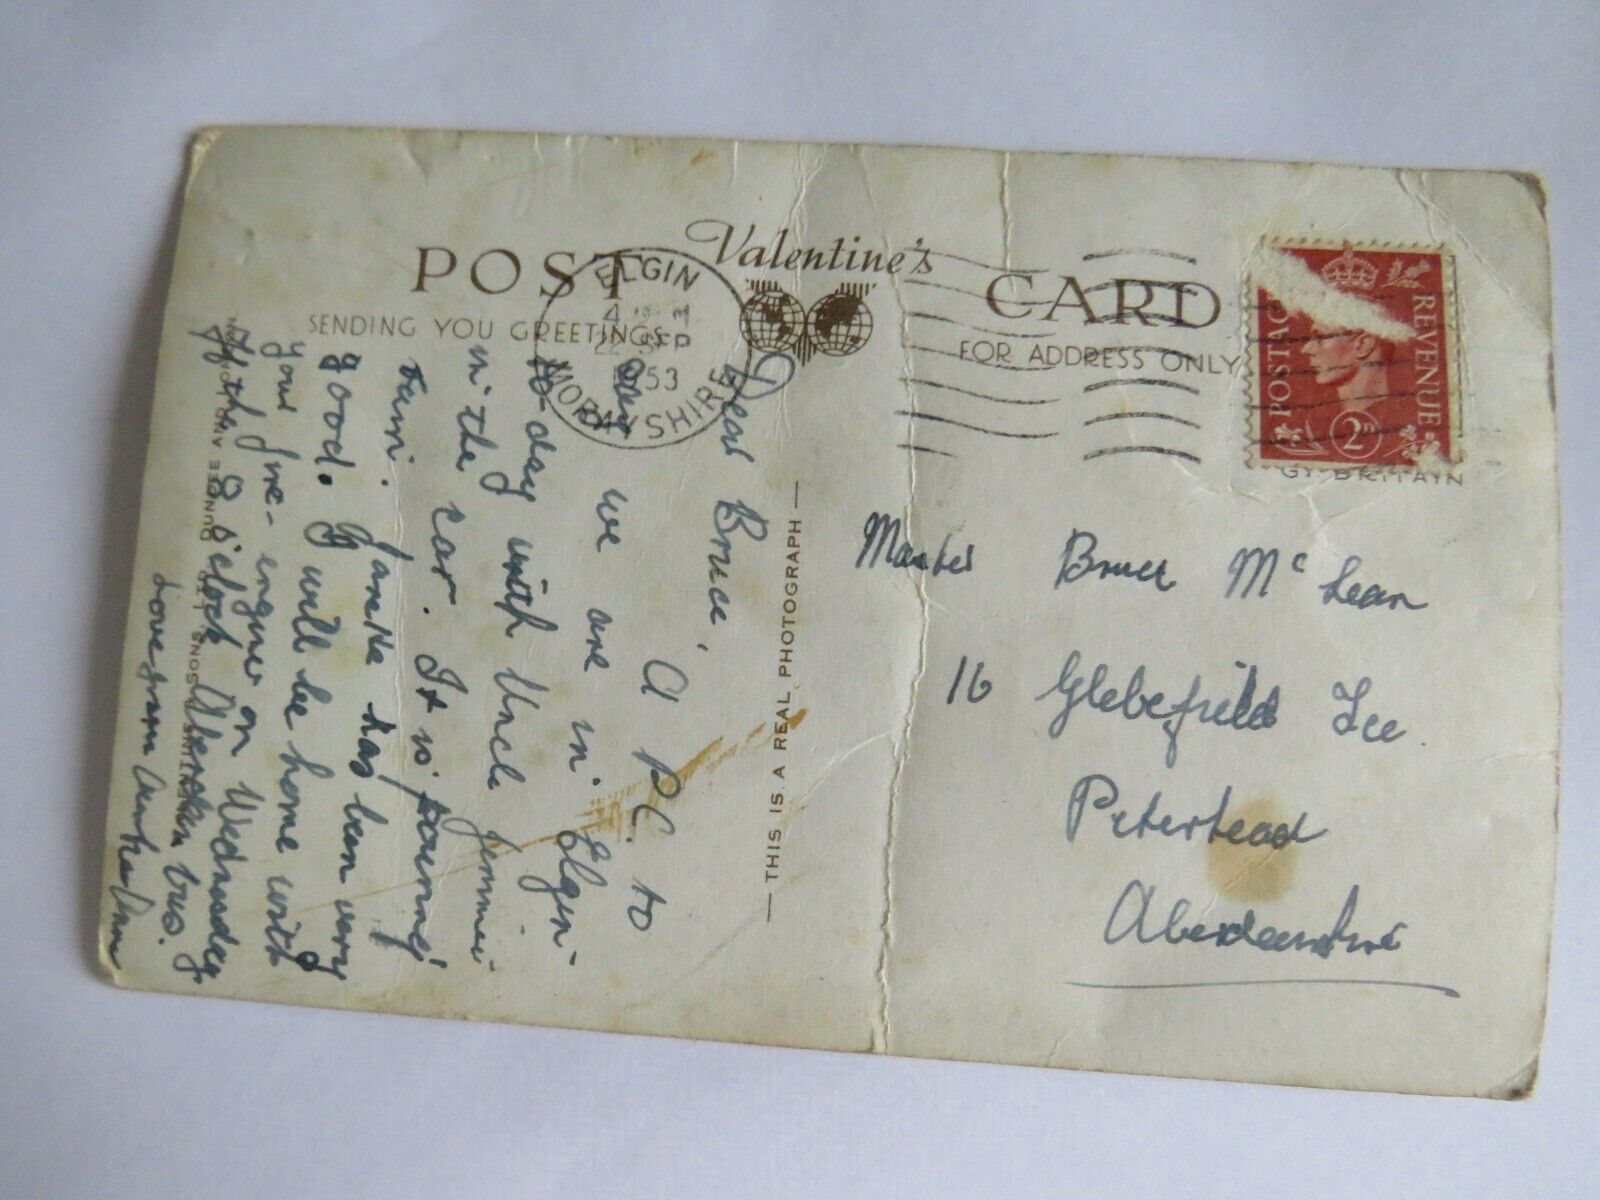 POST CARD
Valentine's
SENDING YOU GREETINGS
FOR ADDRESS ONLY
ELGIN
4
22 SEP
1953
MORAYSHIRE
POSTAGE REVENUE
2D
GT. BRITAIN
Dear Bruce,
A P.C. to
say we are in Elgin
to-day with Uncle Jimmie
in the car. It is
rain. Janette has been very
good. I will be home with
your fire-engine on Wednesday
off the 8 o'clock Aberdeen bus.
Love from
Master Bruce McLean
16 Glebefield Tce
Peterhead
Aberdeenshire
THIS IS A REAL PHOTOGRAPH
VALENTINE & SONS, LTD., DUNDEE AND LONDON